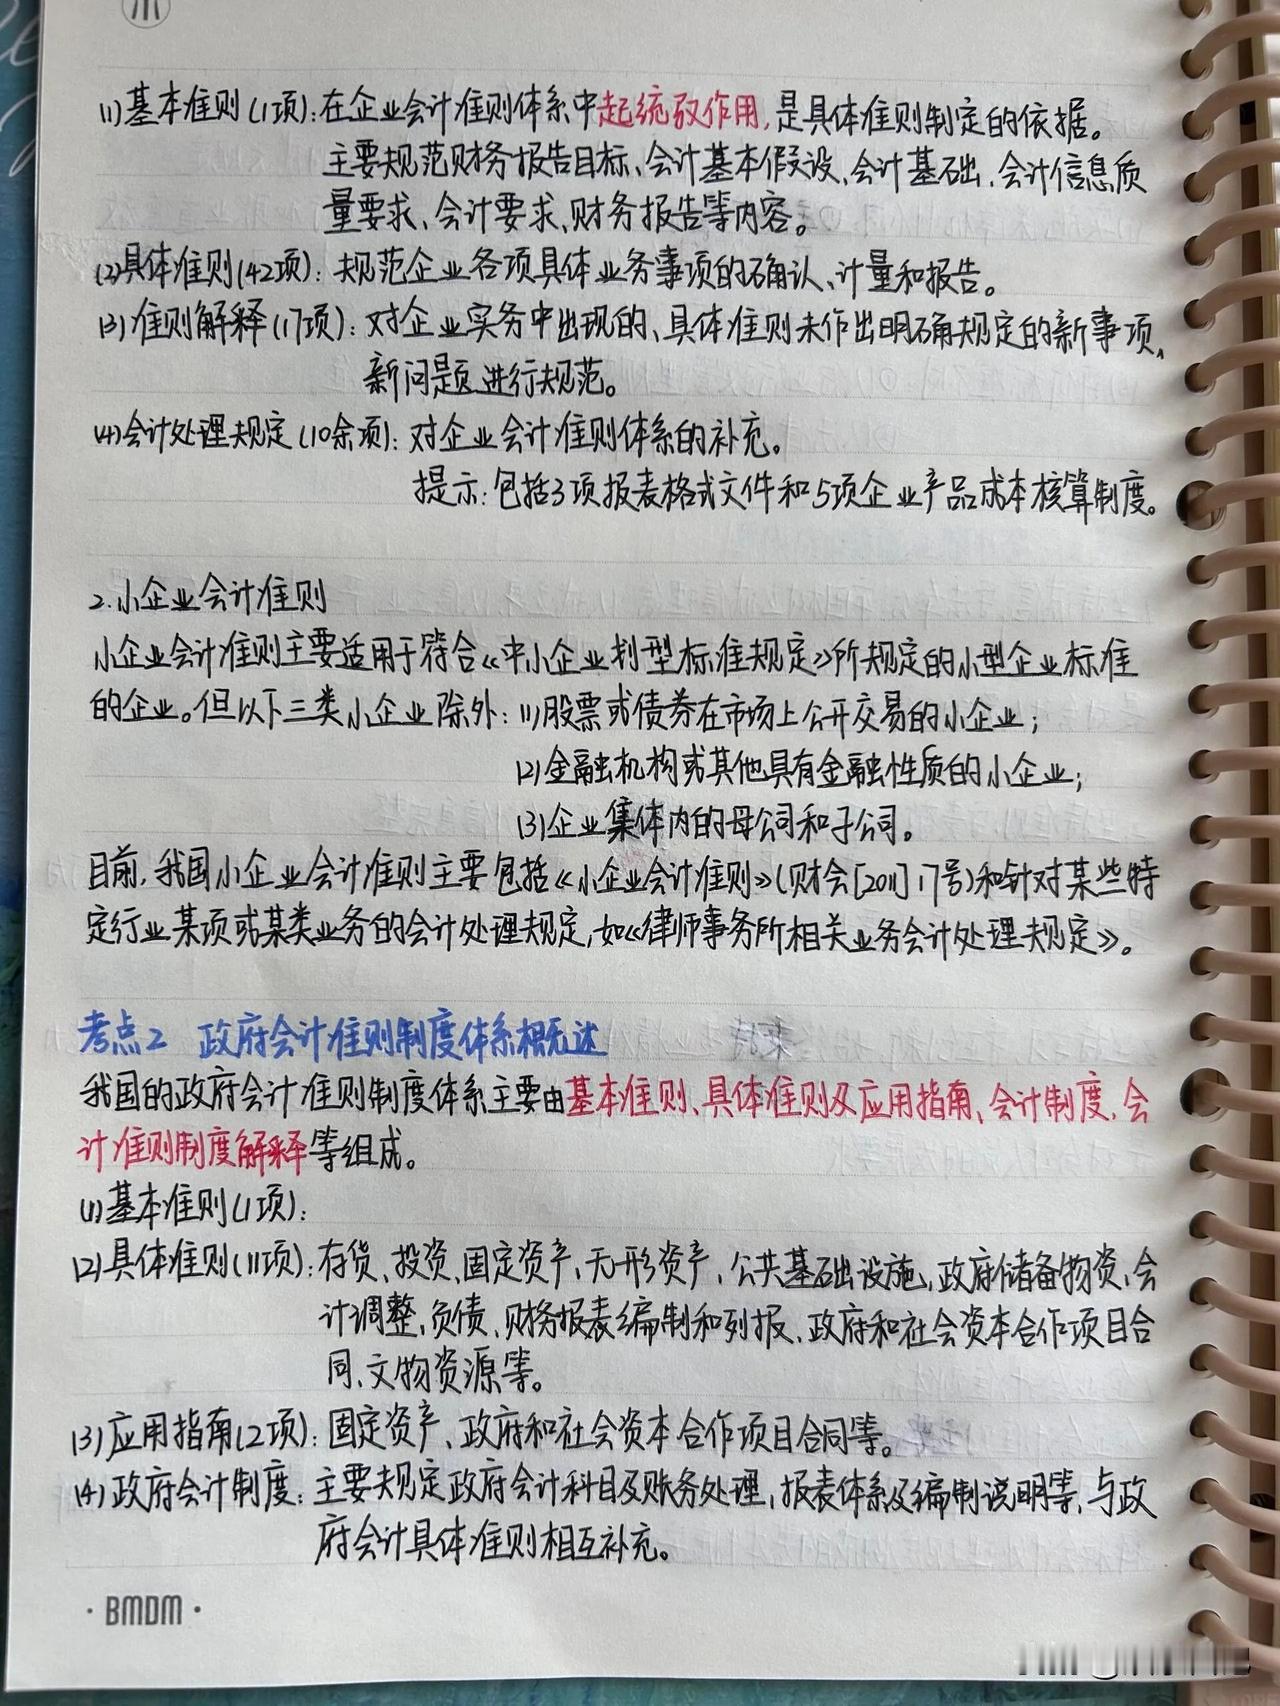 (1)基本准则(1项):在企业会计准则体系中起统驭作用,是具体准则制定的依据。
主要规范财务报告目标、会计基本假设、会计基础、会计信息质
量要求、会计要求、财务报告等内容。
(2)具体准则(42项):规范企业各项具体业务事项的确认、计量和报告。
(3)准则解释(17项):对企业实务中出现的、具体准则未作出明确规定的新事项、
新问题进行规范。
(4)会计处理规定(10余项):对企业会计准则体系的补充。
提示:包括3项报表格式文件和5项企业产品成本核算制度。
2.小企业会计准则
小企业会计准则主要适用于符合《中小企业划型标准规定》所规定的小型企业标准
的企业。但以下三类小企业除外:(1)股票或债券在市场上公开交易的小企业;
(2)金融机构或其他具有金融性质的小企业;
(3)企业集体内的母公司和子公司。
目前,我国小企业会计准则主要包括《小企业会计准则》(财会[2011]17号)和针对某些特
定行业某项或某类业务的会计处理规定,如《律师事务所相关业务会计处理规定》。
考点2 政府会计准则制度体系概述
我国的政府会计准则制度体系主要由基本准则、具体准则及应用指南、会计制度、会
计准则制度解释等组成。
(1)基本准则(1项):
(2)具体准则(11项):存货、投资、固定资产、无形资产、公共基础设施、政府储备物资、会
计调整、负债、财务报表编制和列报、政府和社会资本合作项目合
同、文物资源等。
(3)应用指南(2项):固定资产、政府和社会资本合作项目合同等。
(4)政府会计制度:主要规定政府会计科目及账务处理、报表体系及编制说明等,与政
府会计具体准则相互补充。
·BMDM·